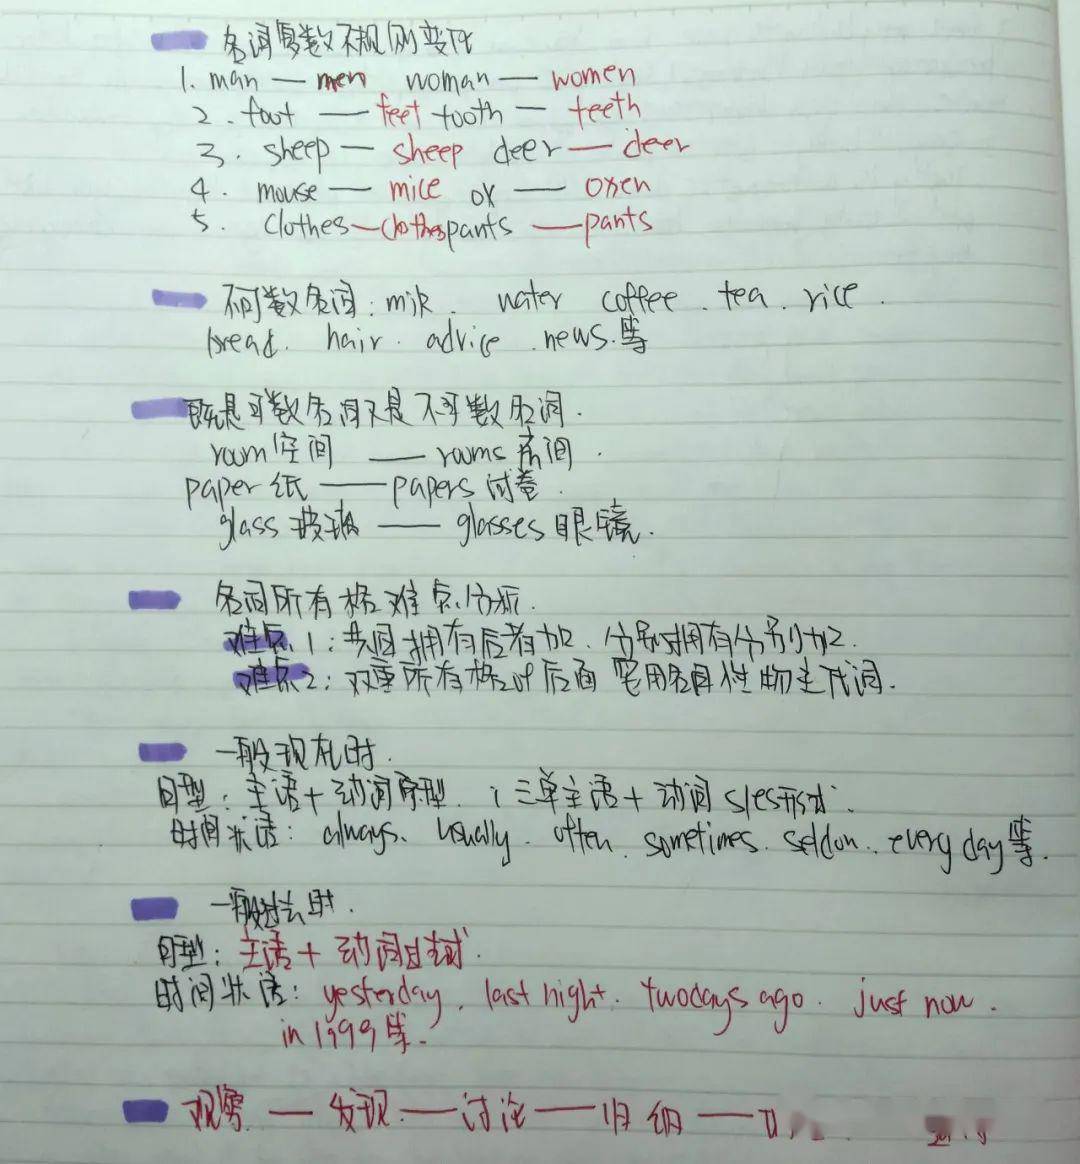 名词复数不规则变化
1. man — men woman — women
2. foot — feet tooth — teeth
3. sheep — sheep deer — deer
4. mouse — mice ox — oxen
5. clothes—clothes pants —pants
不可数名词: milk. water coffee. tea. rice.
bread. hair. advice. news.等
既是可数名词又是不可数名词.
room 空间 — rooms 房间.
paper 纸 — papers 试卷.
glass 玻璃 — glasses 眼镜.
名词所有格难点分析.
难点1: 共同拥有后者加. 分别拥有分别加.
难点2: 双重所有格of后面要用名词性物主代词.
一般现在时.
句型: 主语+动词原型. 三单主语+动词 s/es形式.
时间状语: always. usually. often. sometimes. seldon. every day 等.
一般过去时.
句型: 主语+动词过去式.
时间状语: yesterday. last night. two days ago. just now.
in 1999等.
观察 — 发现 — 讨论 — 归纳 —